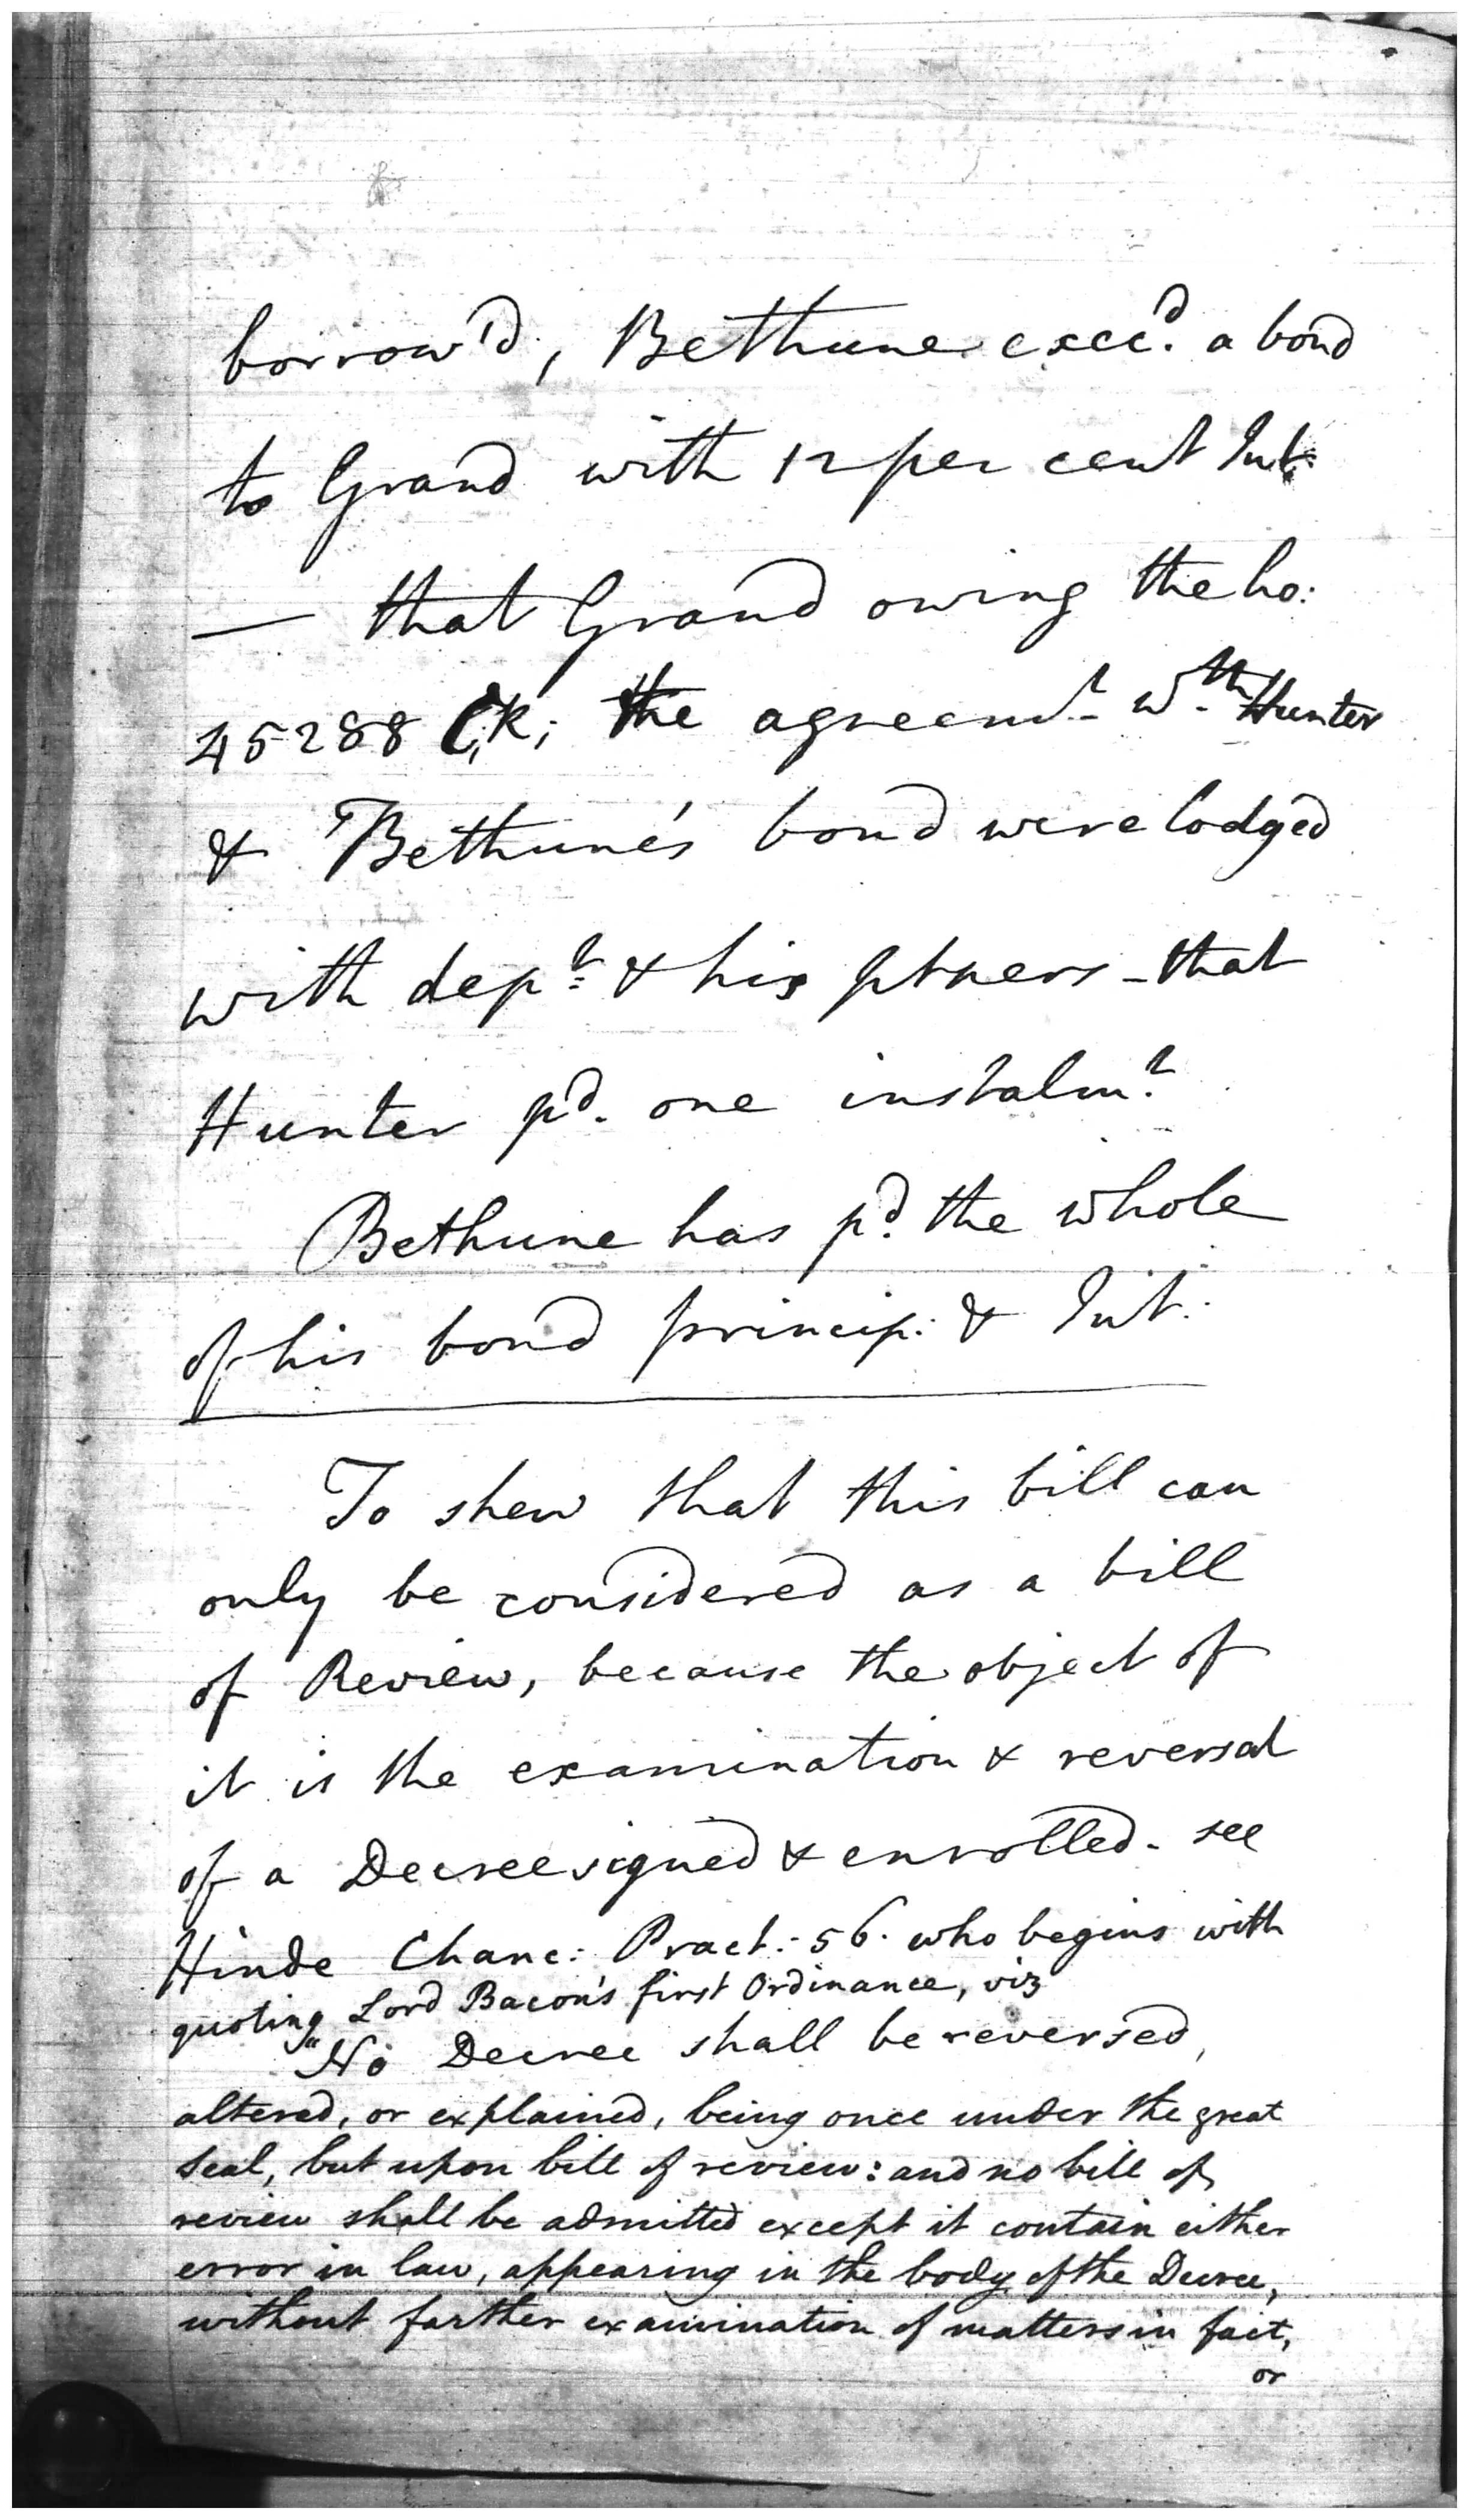 borrow'd, Bethune exec.d a bond
to Grand with 12 per cent Int.
— that Grand owing the ho:
45288 C.R; the agreem.t w.th Hunter
& Bethune's bond were lodged
with dep.t & his ptners - that
Hunter p.d one instalm.t
Bethune has p.d the whole
of his bond princip: & Int:
To shew that this bill can
only be considered as a bill
of Review, because the object of
it is the examination & reversal
of a Decree signed & enrolled. see
Hinde Chanc: Pract: 56. who begins with
quoting Lord Bacon's first Ordinance, viz
"No Decree shall be reversed,
altered, or explained, being once under the great
seal, but upon bill of review: and no bill of
review shall be admitted except it contain either
error in law, appearing in the body of the Decree,
without farther examination of matters in fact,
or